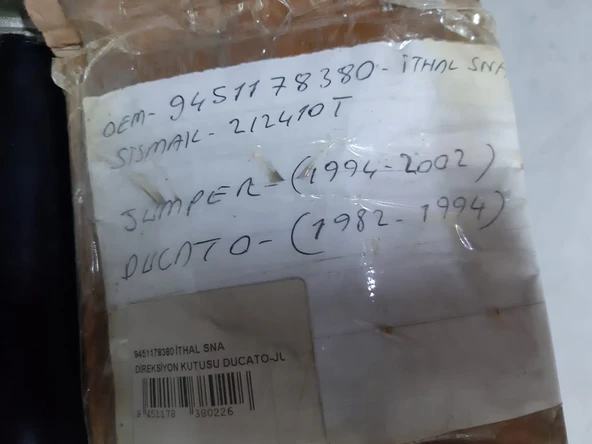 OEM- 9451178380- İTHAL SNA
SISMAK- 212410T
JUMPER- (1994-2002)
DUCATO- (1982-1994)
9451178380 İTHAL SNA
DİREKSİYON KUTUSU DUCATO-JL
9 451178 380226